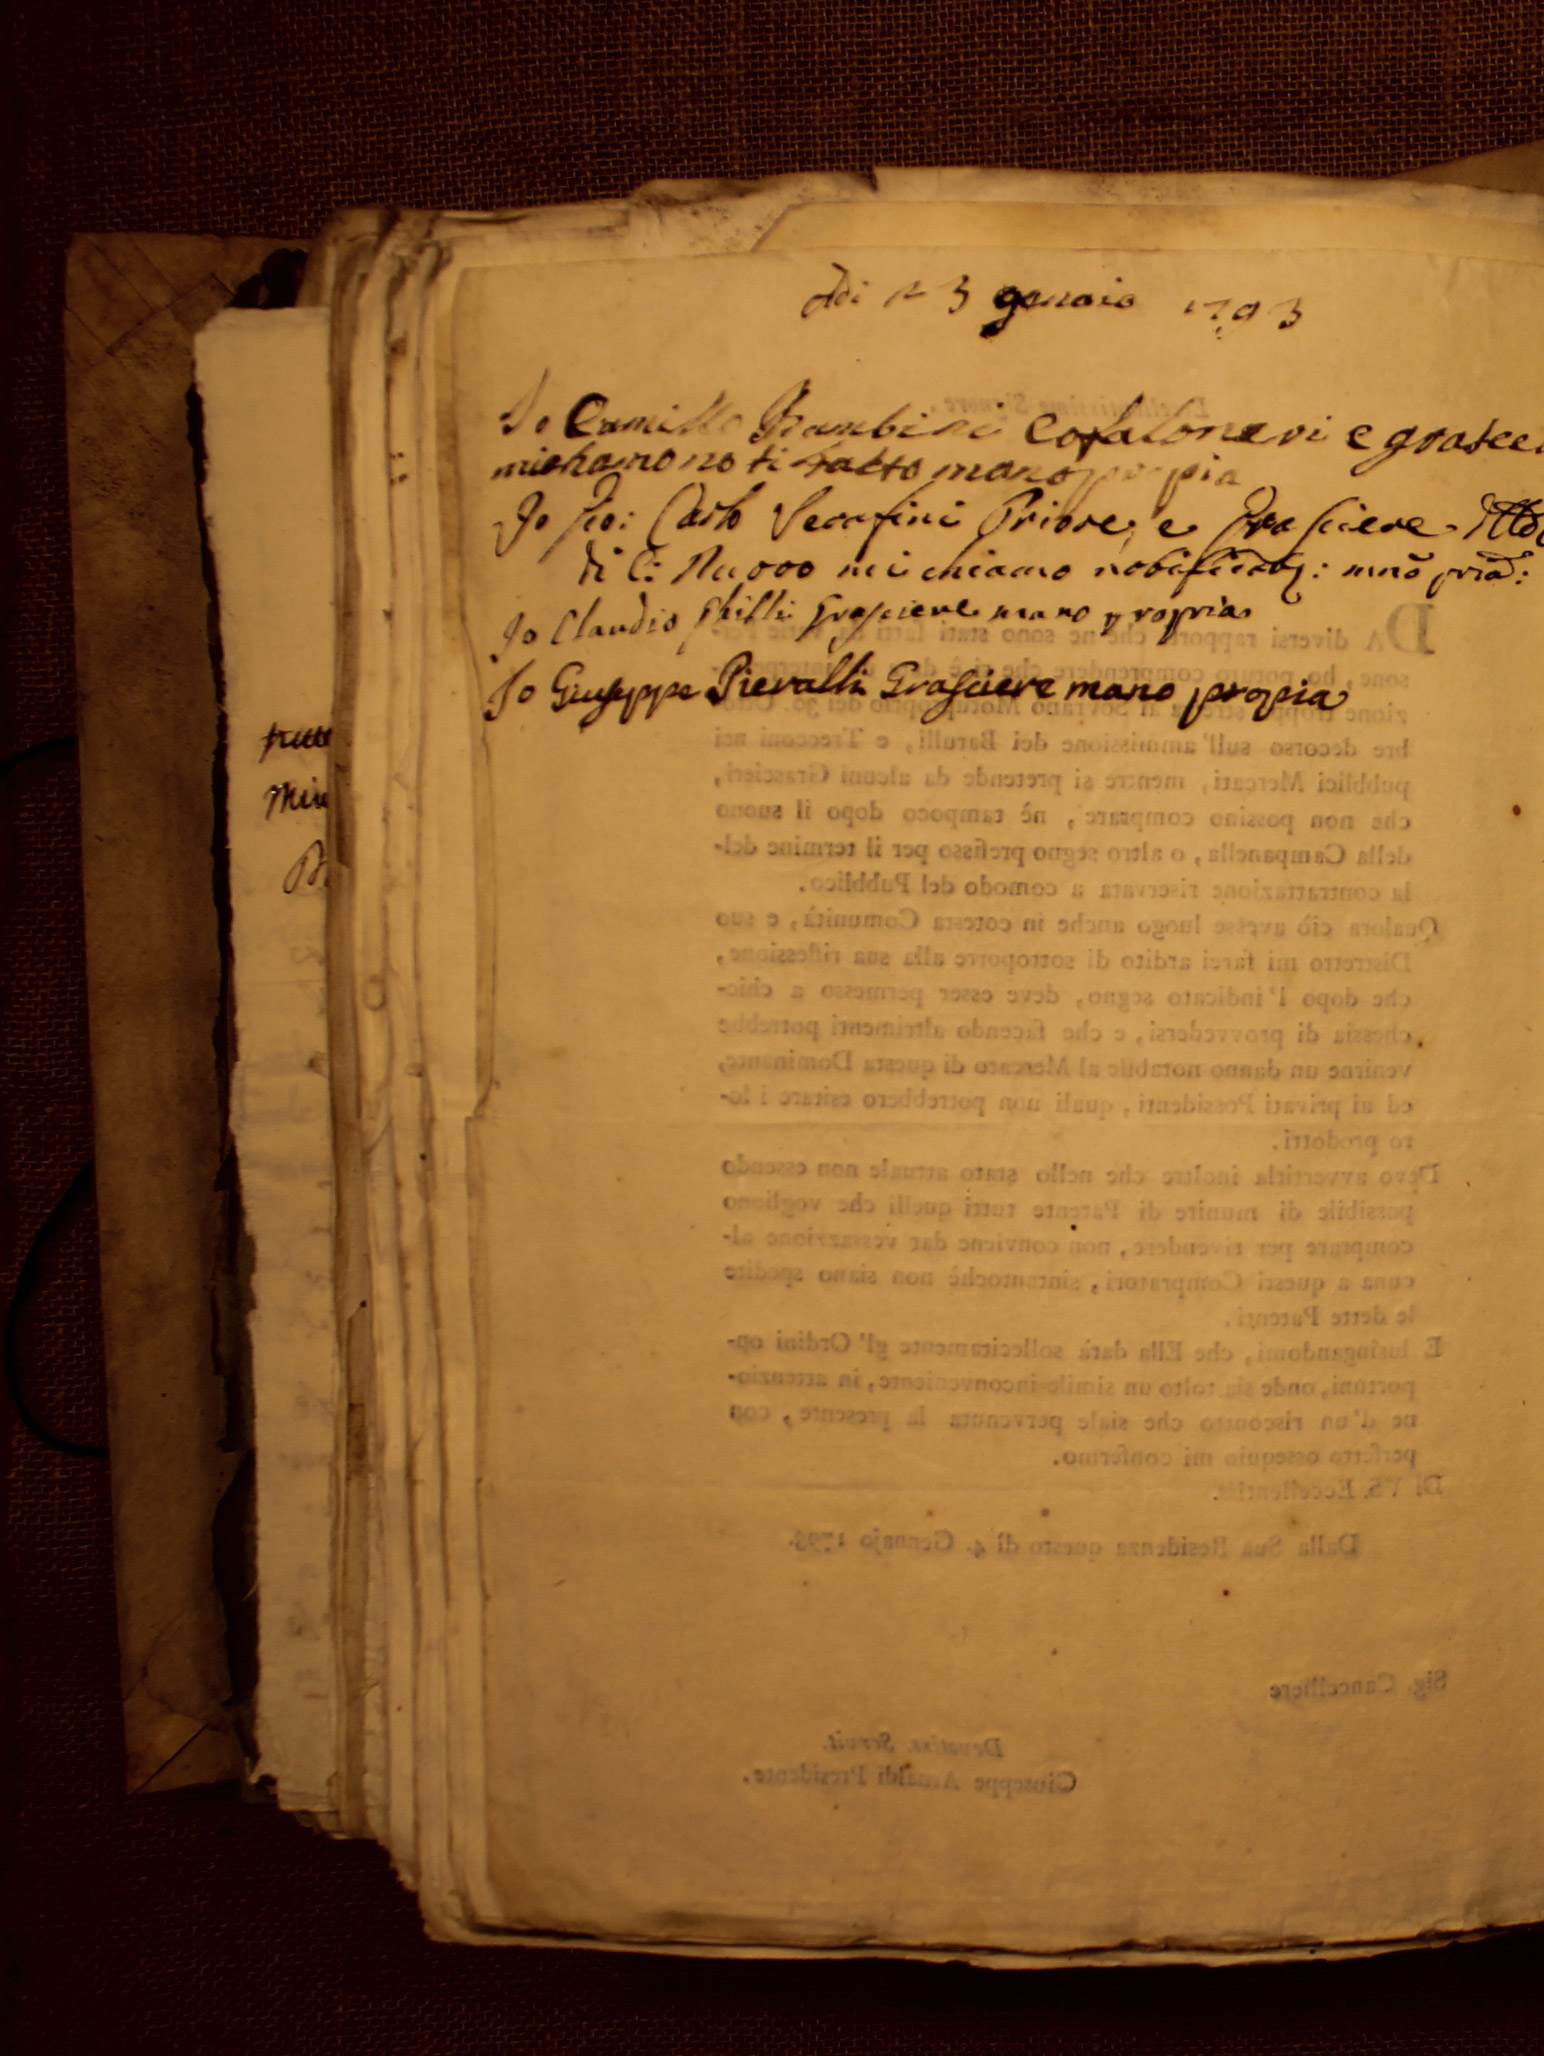 Adi 23 genaio 1793
Io Camillo Bambini e grascie
mi chamo notifatto mano propia
Io Gio: Carlo Serafini Priore, e Grasciere
di C: Nuovo mi chiamo : mnō priā:
Io Claudio Ghilli Grasciere mano propria
Io Giuseppe Pieralli Grasciere mano propia
Eccellentissimo Signore,
DA diversi rapporti che ne sono stati fatti da varie Per-
sone, ho potuto comprendere che si è data un'interpetra-
zione troppo stretta al Sovrano Motuproprio dei 30. Otto-
bre decorso sull'ammissione dei Barulli, e Trecconi nei
pubblici Mercati, mentre si pretende da alcuni Grascieri,
che non possino comprare, nè tampoco dopo il suono
della Campanella, o altro segno prefisso per il termine del-
la contrattazione riservata a comodo del Pubblico.
Qualora ciò avesse luogo anche in cotesta Comunità, e suo
Distretto mi farei ardito di sottoporre alla sua riflessione,
che dopo l'indicato segno, deve esser permesso a chic-
chessia di provvedersi, e che facendo altrimenti potrebbe
venirne un danno notabile al Mercato di questa Dominante,
ed ai privati Possidenti, quali non potrebbero esitare i lo-
ro prodotti.
Devo avvertirla inoltre che nello stato attuale non essendo
possibile di munire di Patente tutti quelli che vogliono
comprare per rivendere, non conviene dar vessazzione al-
cuna a questi Compratori, sintantochè non siano spedite
le dette Patenti.
E lusingandomi, che Ella darà sollecitamente gl' Ordini op-
portuni, onde sia tolto un simile inconveniente, in attenzio-
ne d'un riscontro che siale pervenuta la presente, con
perfetto ossequio mi confermo.
Di VS. Eccellentiss.
Dalla Sua Residenza questo dì 4. Gennajo 1793.
Sig. Cancelliere
Devotiss. Servit.
Giuseppe Arnaldi Presidente.